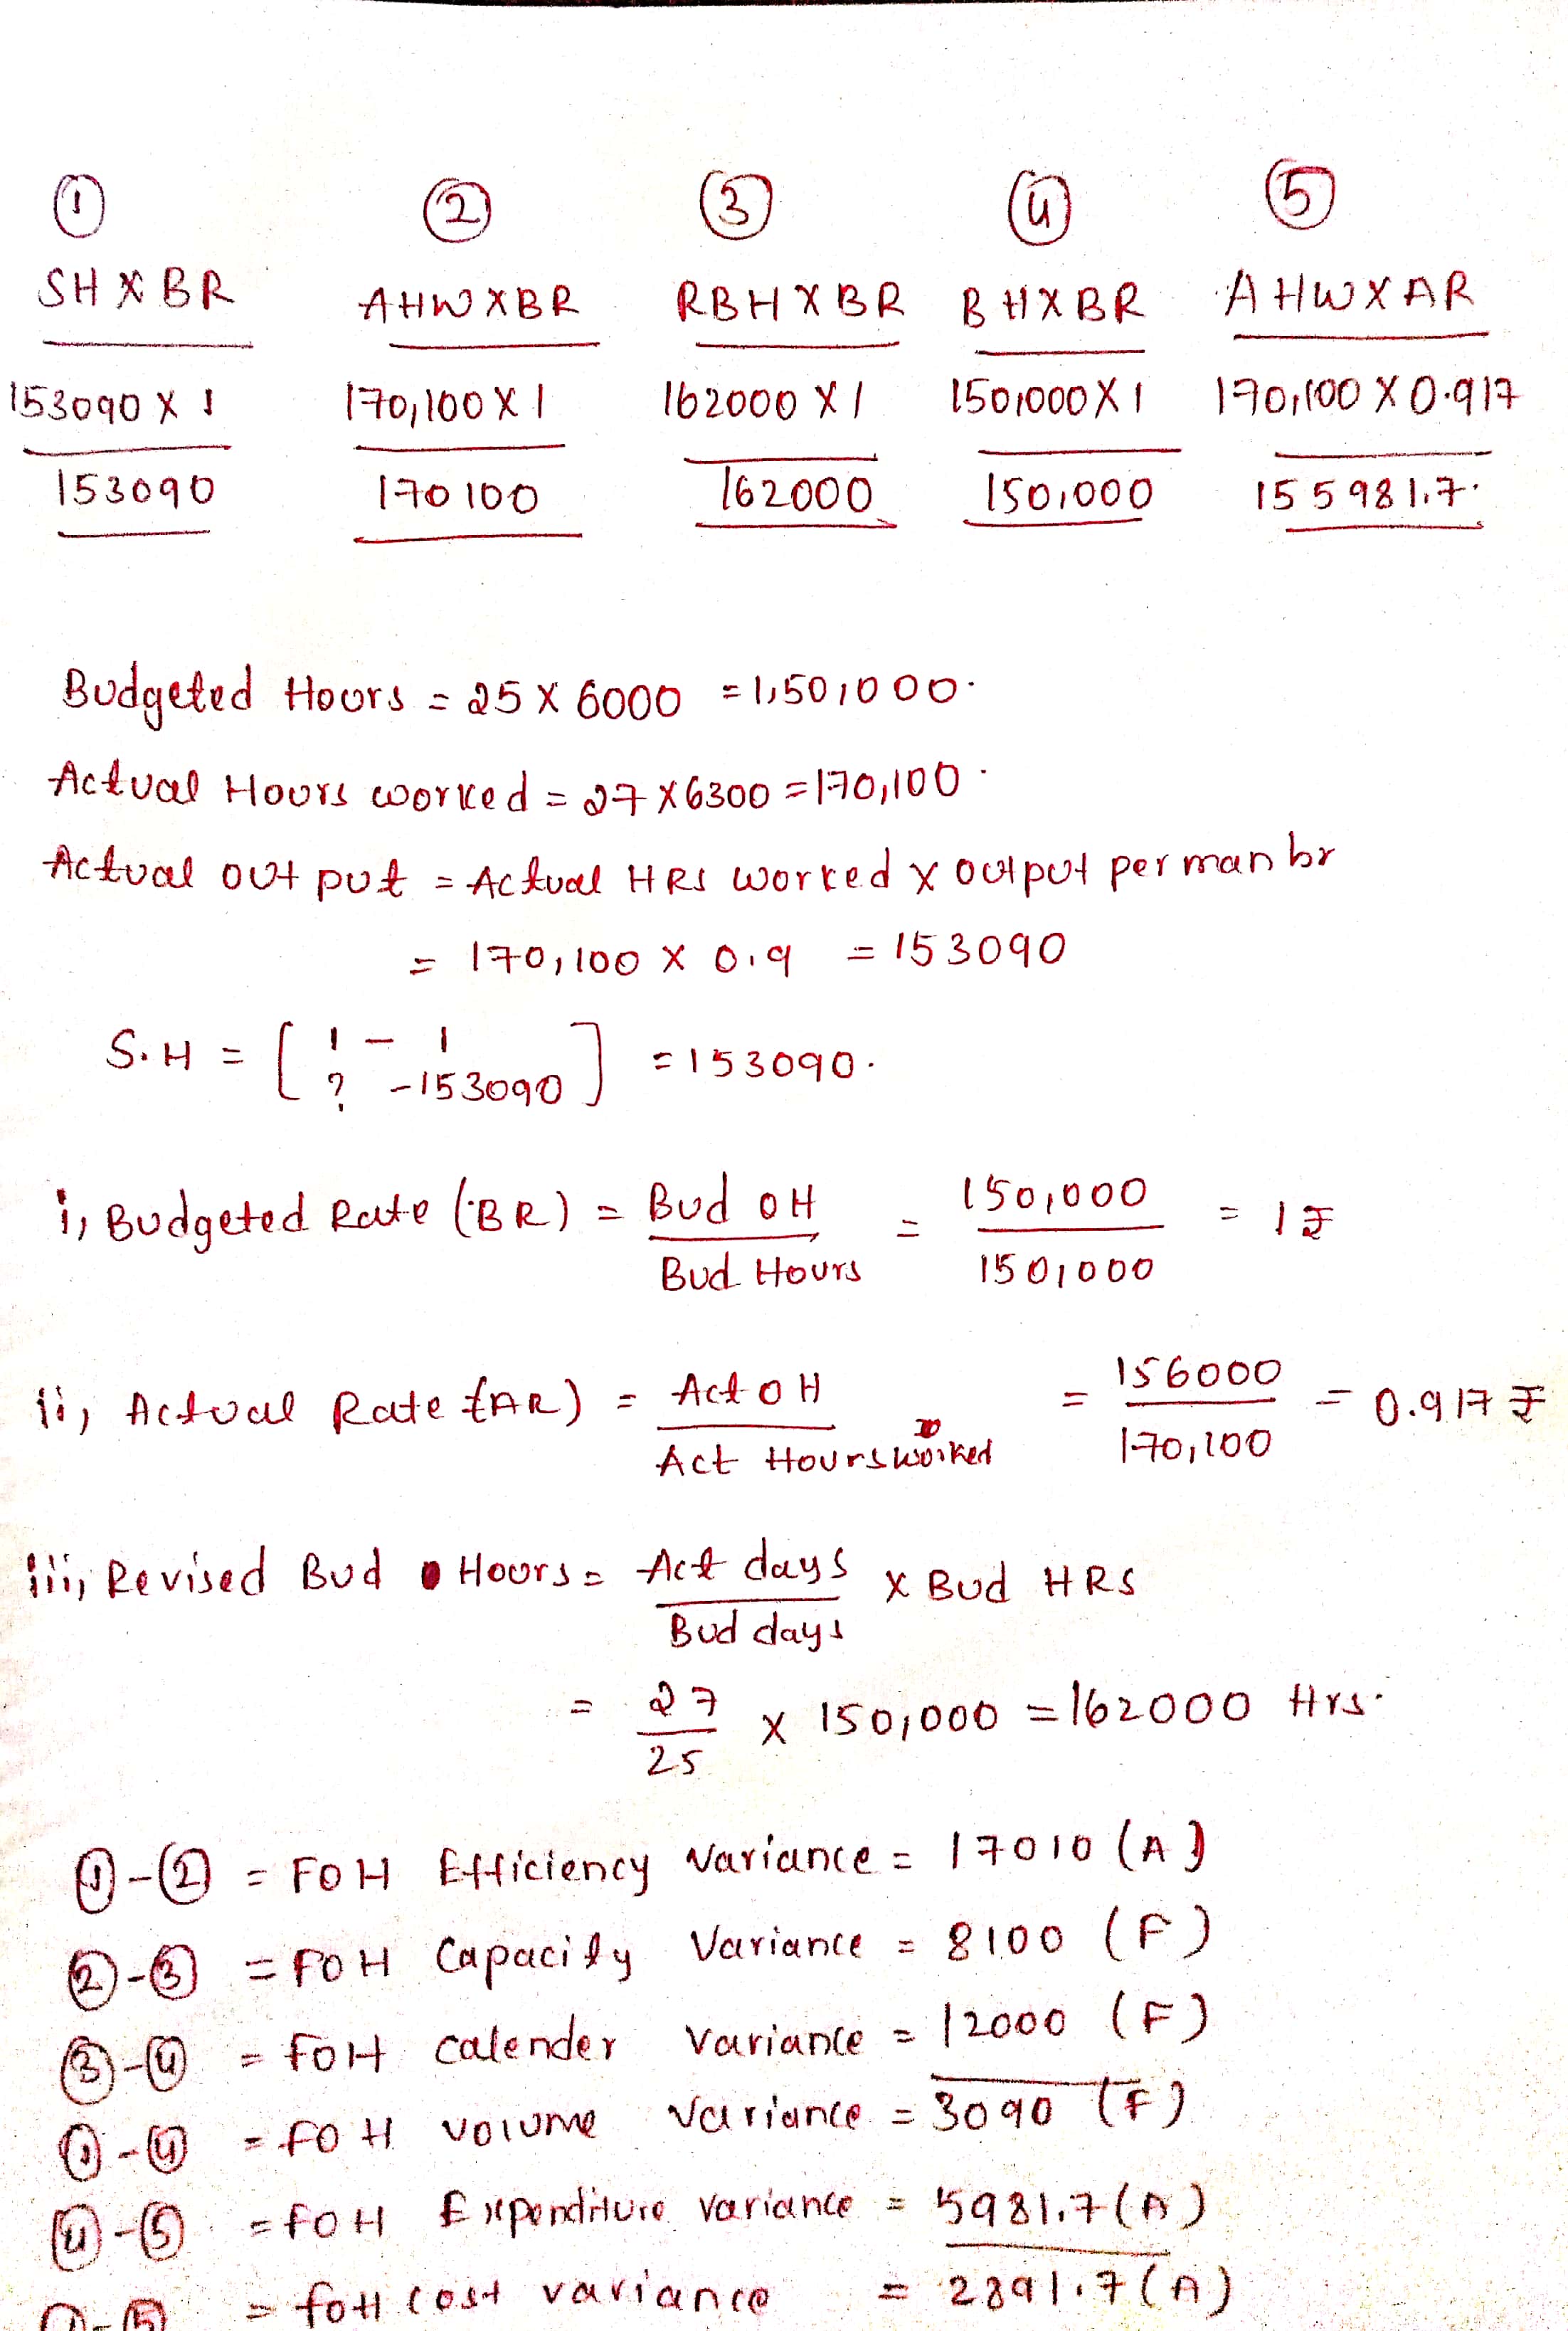 ① ② ③ ④ ⑤
SH X BR AHW X BR RBH X BR BHX BR AHW X AR
153090 X 1 170,100 X 1 162000 X 1 150,000 X 1 170,100 X 0.917
153090 170100 162000 150,000 155981.7.
Budgeted Hours = 25 X 6000 = 1,50,000.
Actual Hours worked = 27 X 6300 = 170,100.
Actual out put = Actual HRS worked X output per man hr
= 170,100 X 0.9 = 153090
S.H = [ 1 - 1
? - 153090 ] = 153090.
i, Budgeted Rate (BR) = Bud OH / Bud Hours = 150,000 / 150,000 = 1 ₹
ii, Actual Rate (AR) = Act OH / Act Hours worked = 156000 / 170,100 = 0.917 ₹
iii, Revised Bud Hours = Act days / Bud days X Bud HRS
= 27 / 25 X 150,000 = 162000 Hrs.
① - ② = FOH Efficiency Variance = 17010 (A)
② - ③ = FOH Capacity Variance = 8100 (F)
③ - ④ = FOH calender variance = 12000 (F)
① - ④ = FOH volume variance = 3090 (F)
④ - ⑤ = FOH Expenditure variance = 5981.7 (A)
① - ⑤ = FOH cost variance = 2891.7 (A)